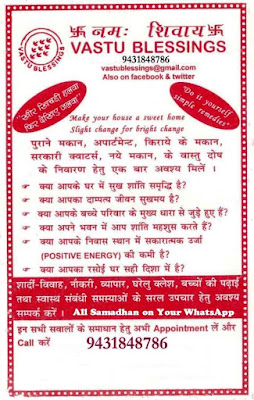 卐 नमः शिवाय 卐
VASTU BLESSINGS
VASTU BLESSINGS
9431848786
vastublessings@gmail.com
Also on facebook & twitter
"वीर खिचड़ी हलवा
फिर देखिए जलवा"
"Do it yourself
simple remedies"
Make your house a sweet home
Slight change for bright change
पुराने मकान, अपार्टमेन्ट, किराये के मकान,
सरकारी क्वाटर्स, नये मकान, के वास्तु दोष
के निवारण हेतु एक बार अवश्य मिलें ।
क्या आपके घर में सुख शांति समृद्धि है?
क्या आपका दाम्पत्य जीवन सुखमय है?
क्या आपके बच्चे परिवार के मुख्य धारा से जुड़े हुए हैं?
क्या अपने भवन में आप शांति महशुस करते हैं?
क्या आपके निवास स्थान में सकारात्मक उर्जा
(POSITIVE ENERGY) की कमी है?
क्या आपका रसोई घर सही दिशा में है?
शादी-विवाह, नौकरी, व्यापार, घरेलु क्लेश, बच्चों की पढ़ाई
तथा स्वास्थ संबंधी समस्याओं के सरल उपचार हेतु अवश्य
सम्पर्क करें । All Samadhan on Your WhatsApp
इन सभी सवालों के समाधान हेतु अभी Appointment लें और
Call करें 9431848786